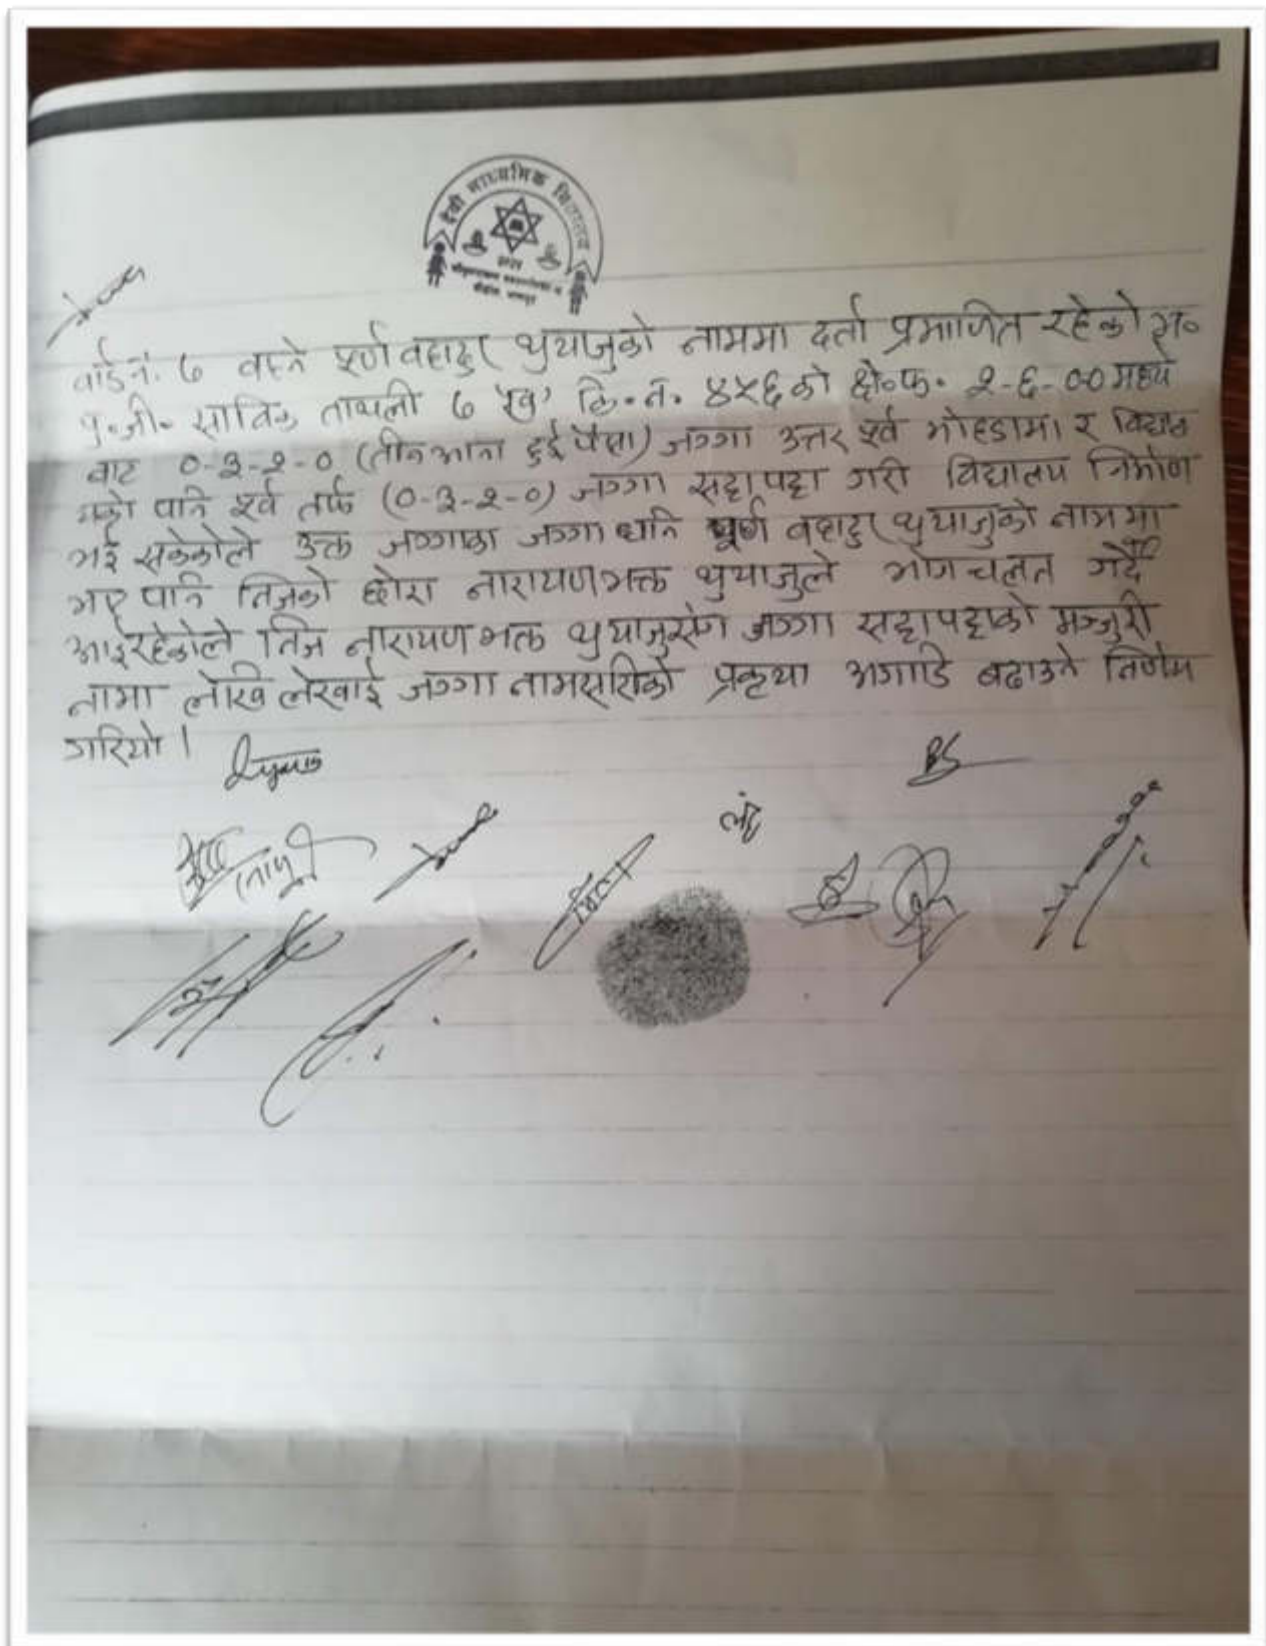 देवी माध्यमिक विद्यालय
वार्ड नं. ७ बस्ने पूर्ण वहादुर थुयाजुको नाममा दर्ता प्रमाणित रहेको भ०
पु.जी. साविक ताथली ७ 'ख' कि.नं. ४५६ को क्षे.फ. २-६-०० मध्ये
बाट ०-३-२-० (तीन आना दुई पैसा) जग्गा उत्तर पूर्व मोहडामा र
पनि पूर्व तर्फ (०-३-२-०) जग्गा सट्टापट्टा गरी विद्यालय निर्माण
भई सकेकोले उक्त जग्गाका जग्गा धनि पूर्ण वहादुर थुयाजुको नाममा
भए पनि निजको छोरा नारायणभक्त थुयाजुले भोगचलन गर्दै
आइरहेकोले निज नारायणभक्त थुयाजुसंग जग्गा सट्टापट्टाको मञ्जुरी
नामा लेखि लेखाई जग्गा नामसारीको प्रकृया अगाडि बढाउने निर्णय
गरियो ।